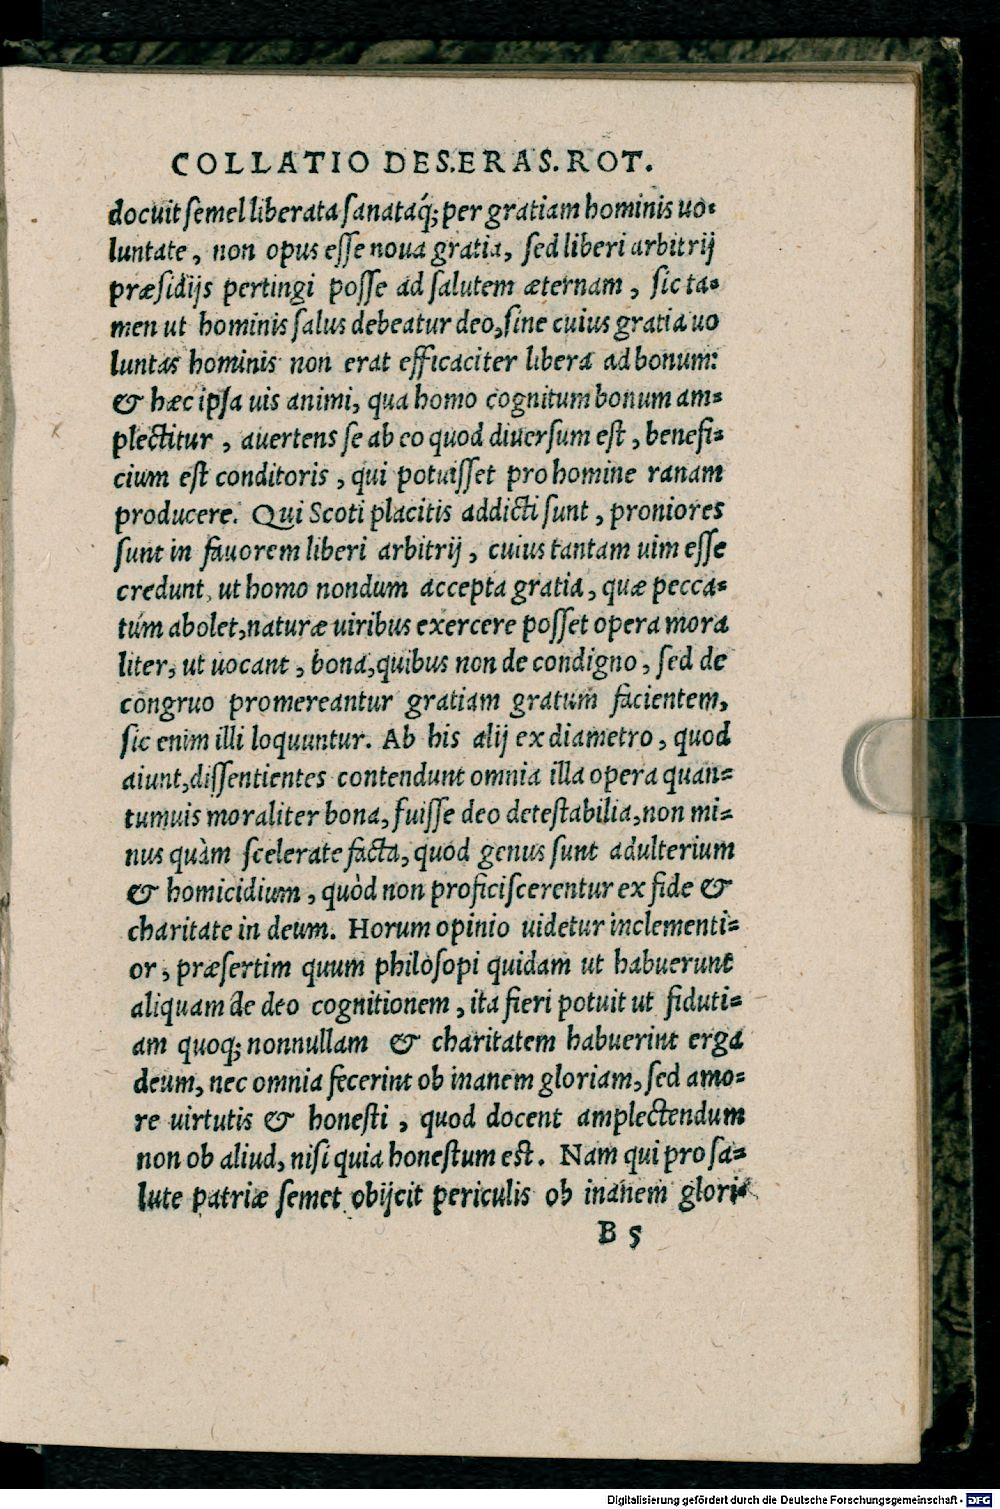 COLLATIO DES.ERAS.ROT.
docuit semel liberata sanataq́; per gratiam hominis uo-
luntate, non opus esse noua gratia, sed liberi arbitrij
præsidijs pertingi posse ad salutem æternam, sic ta-
men ut hominis salus debeatur deo, sine cuius gratia uo
luntas hominis non erat efficaciter libera ad bonum:
& hæc ipsa uis animi, qua homo cognitum bonum am-
plectitur, auertens se ab eo quod diuersum est, benefi-
cium est conditoris, qui potuisset pro homine ranam
producere. Qui Scoti placitis addicti sunt, proniores
sunt in fauorem liberi arbitrij, cuius tantam uim esse
credunt, ut homo nondum accepta gratia, quæ pecca-
tum abolet, naturæ uiribus exercere posset opera mora
liter, ut uocant, bona, quibus non de condigno, sed de
congruo promereantur gratiam gratum facientem,
sic enim illi loquuntur. Ab his alij ex diametro, quod
aiunt, dissentientes contendunt omnia illa opera quan-
tumuis moraliter bona, fuisse deo detestabilia, non mi-
nus quàm scelerate facta, quod genus sunt adulterium
& homicidium, quòd non proficiscerentur ex fide &
charitate in deum. Horum opinio uidetur inclementi-
or, præsertim quum philosopi quidam ut habuerunt
aliquam de deo cognitionem, ita fieri potuit ut fiduti-
am quoq; nonnullam & charitatem habuerint erga
deum, nec omnia fecerint ob inanem gloriam, sed amo-
re uirtutis & honesti, quod docent amplectendum
non ob aliud, nisi quia honestum est. Nam qui pro sa-
lute patriæ semet obijcit periculis ob inanem glori-
B 5
Digitalisierung gefördert durch die Deutsche Forschungsgemeinschaft - DFG